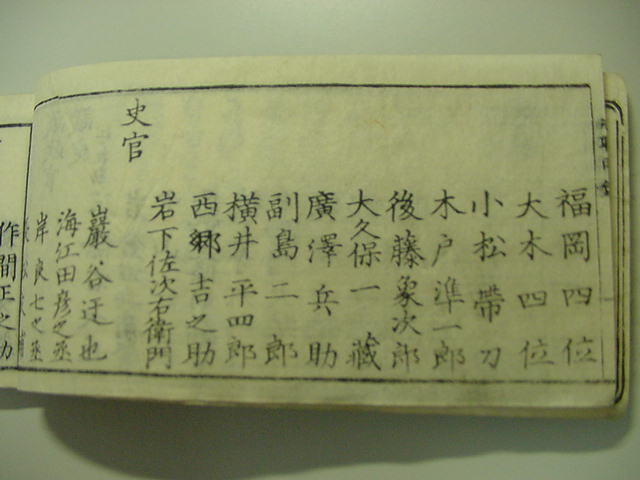 福岡四位
大木四位
小松帶刀
木戸準一郎
後藤象次郎
大久保一藏
廣澤兵助
副島二郎
横井平四郎
西郷吉之助
岩下佐次右衛門
史官
巖谷迂也
海江田彦之丞
岸良七之丞
作間正之助